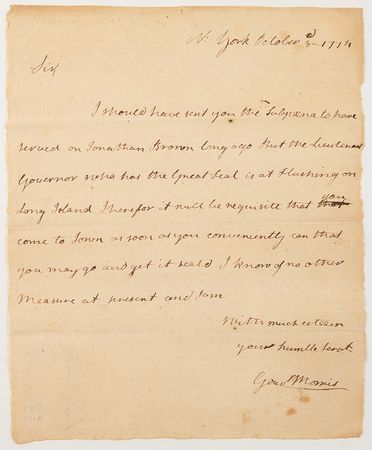 N. York October 3d 1774
Sir,
I should have sent you the Subpœna to have
served on Jonathan Brown long ago But the Lieutenant
Governor who has the Great Seal is at Flushing on
Long Island Therefor it will be requisite that you
come to Town as soon as you conveniently can that
you may go and get it seald I know of no other
Measure at present and I am
With much esteem
your humble Servt
Gouvr Morris